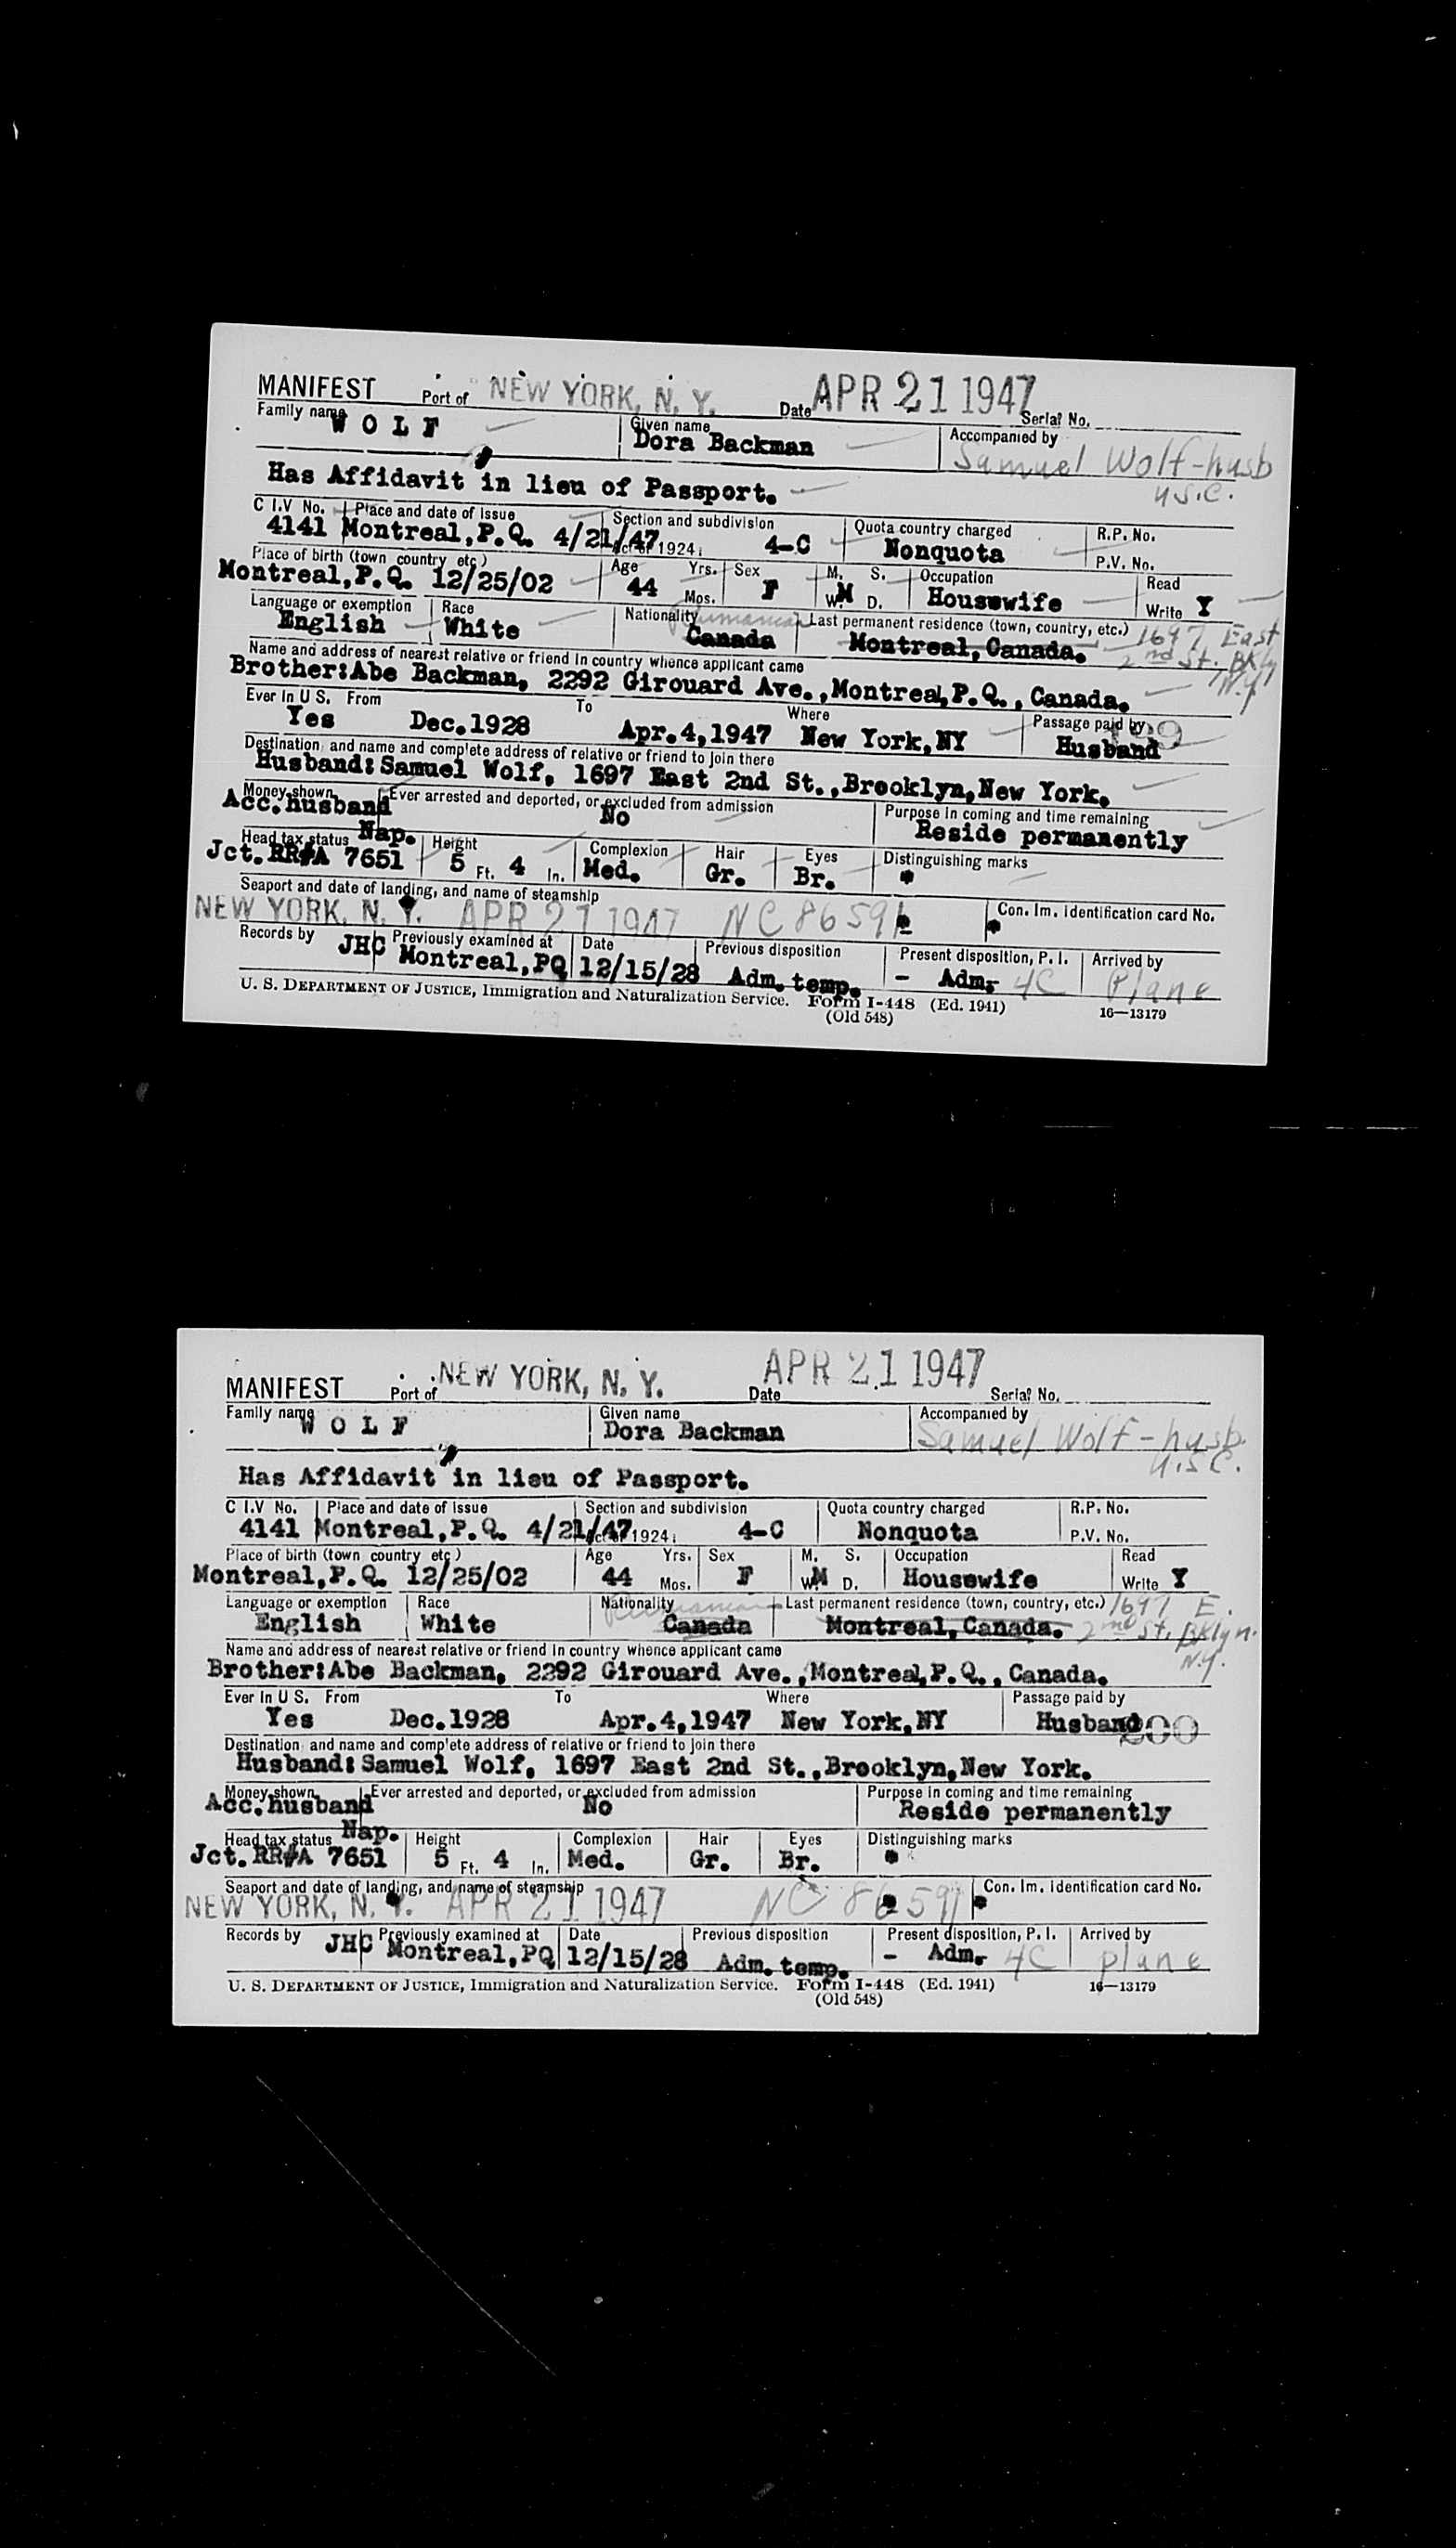 MANIFEST Port of NEW YORK, N. Y. Date APR 21 1947 Serial No.
Family name WOLF Given name Dora Backman Accompanied by Samuel Wolf-husb
U.S.C.
Has Affidavit in lieu of Passport.
C I.V No. Place and date of issue Section and subdivision Quota country charged R.P. No.
4141 Montreal,P.Q. 4/21/47 Act of 1924 4-C Nonquota P.V. No.
Place of birth (town country etc) Age Yrs. Sex M. S. Occupation Read
Montreal,P.Q. 12/25/02 44 Mos. F W. M D. Housewife Write Y
Language or exemption Race Nationality Rumanian Last permanent residence (town, country, etc.) 1697 East
English White Canada Montreal, Canada. 2nd St. BKly
N.Y
Name and address of nearest relative or friend in country whence applicant came
Brother:Abe Backman, 2292 Girouard Ave.,Montreal,P.Q., Canada.
Ever in U S. From To Where Passage paid by
Yes Dec.1928 Apr.4,1947 New York,NY Husband
Destination, and name and complete address of relative or friend to join there
Husband:Samuel Wolf, 1697 East 2nd St.,Brooklyn,New York.
Money shown Ever arrested and deported, or excluded from admission Purpose in coming and time remaining
Acc.husband No Reside permanently
Head tax status Nap. Height Complexion Hair Eyes Distinguishing marks
Jct.RR#A 7651 5 Ft. 4 In. Med. Gr. Br.
Seaport and date of landing, and name of steamship Con. Im. identification card No.
NEW YORK, N. Y. APR 21 1947 NC 86591
Records by JHC Previously examined at Date Previous disposition Present disposition, P. I. Arrived by
Montreal,PQ 12/15/28 Adm.temp. - Adm. 4C Plane
U. S. DEPARTMENT OF JUSTICE, Immigration and Naturalization Service. Form I-448 (Ed. 1941) 16—13179
(Old 548)
MANIFEST Port of NEW YORK, N. Y. Date APR 21 1947 Serial No.
Family name WOLF Given name Dora Backman Accompanied by Samuel Wolf-husb.
U.S.C.
Has Affidavit in lieu of Passport.
C I.V No. Place and date of issue Section and subdivision Quota country charged R.P. No.
4141 Montreal,P.Q. 4/21/47 Act of 1924 4-C Nonquota P.V. No.
Place of birth (town country etc) Age Yrs. Sex M. S. Occupation Read
Montreal,P.Q. 12/25/02 44 Mos. F W. M D. Housewife Write Y
Language or exemption Race Nationality Rumanian Last permanent residence (town, country, etc.) 1697 E.
English White Canada Montreal, Canada. 2nd St. Bklyn.
N.Y.
Name and address of nearest relative or friend in country whence applicant came
Brother:Abe Backman, 2292 Girouard Ave.,Montreal,P.Q., Canada.
Ever in U S. From To Where Passage paid by
Yes Dec.1928 Apr.4,1947 New York,NY Husband 200
Destination, and name and complete address of relative or friend to join there
Husband:Samuel Wolf, 1697 East 2nd St.,Brooklyn,New York.
Money shown Ever arrested and deported, or excluded from admission Purpose in coming and time remaining
Acc.husband No Reside permanently
Head tax status Nap. Height Complexion Hair Eyes Distinguishing marks
Jct.RR#A 7651 5 Ft. 4 In. Med. Gr. Br.
Seaport and date of landing, and name of steamship Con. Im. identification card No.
NEW YORK, N. Y. APR 21 1947 NC 86591
Records by JHC Previously examined at Date Previous disposition Present disposition, P. I. Arrived by
Montreal,PQ 12/15/28 Adm.temp. - Adm. 4C Plane
U. S. DEPARTMENT OF JUSTICE, Immigration and Naturalization Service. Form I-448 (Ed. 1941) 16—13179
(Old 548)